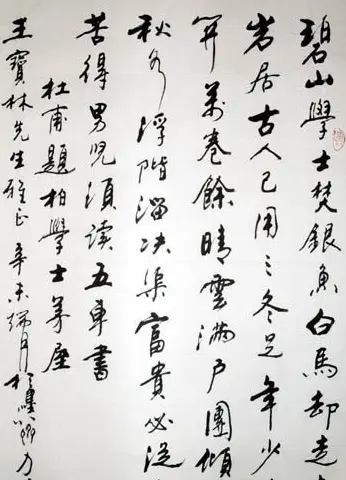 碧山學士焚銀魚白馬却走
岩居古人已用三冬足年少
開萬卷餘晴雲滿戶團傾
秋水浮階溜决渠富貴必從
苦得男兒須读五車書
杜甫題柏學士茅屋
王寶林先生雅正辛未端月於